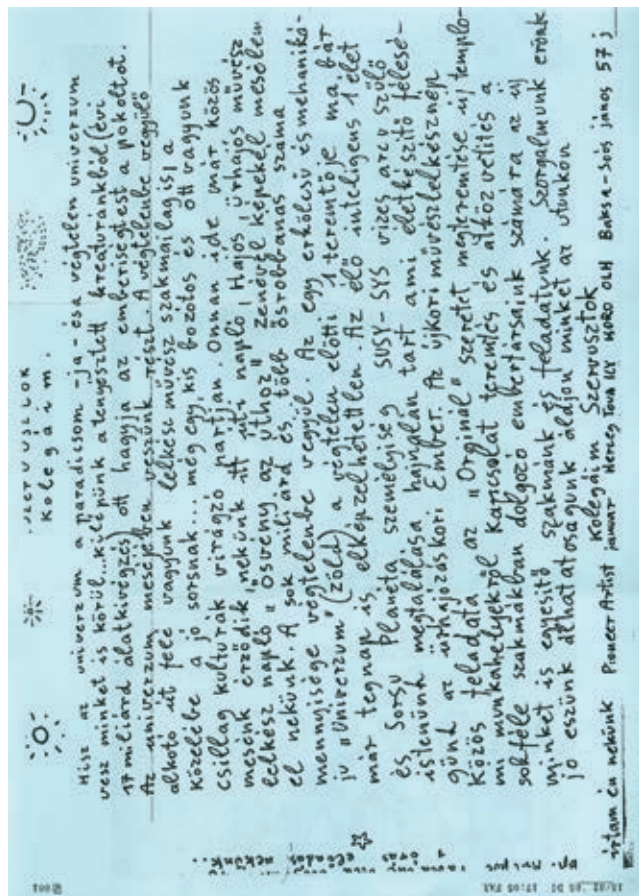 SZERVUSZTOK
Kolegáim.
Hisz az univerzum a paradicsom -ja- ésa végtelen univerzum
vesz minket is körül...kilépünk a tenyésztett kreaturánkból (évi
17 miliárd álatkivégzés) ott hagyja az emberiségest a pokoltot.
Az univerzum meséjében veszünk részt. A végtelenbe vegyülő
alkotó út fele vagyunk lelkész művész szakmailag is) a
közelébe a jó sorsnak... még egy kis bozótos és ott vagyunk
csillag kulturák virágzó partján. Onnan ide már közös
mesénk érződik "nekünk itt uti napló, Hajós ürhajós művész
lelkész napló "Ösvény az úthoz" zenével képekel mesélem
el nekünk. A sok miliárd és több ösrobbanás száma
mennyisége végtelenbe vegyül. Az egy erkölcsü és mehanikó-
ju "Univerzum" (zöld) a végtelen előtti 1 teremtője ma bár
már tegnap is elképzelhetetlen. Az élő inteligens 1 élet
és Sorsu Planéta személyiség SUSY-SYS vizes arcu szülő
istenünk megtalálása hajnalán tart ami életkészitő felesé-
günd az ürhajózáskori Ember. Az újkori művészlelkésznép
közös feladata az "Orginál" szeretet megteremtése új templo-
mi munkahelyekről kapcsolat teremtés és átközvetités a
sokféle szakmákban dolgozó embertársaink számára az új
minket is egyesitő szakmánk és feladatunk. Szorgalmunk erőnk
jo eszünk álhatatosagunk áldjon minket az utunkon
Kolegáim Szervusztok
irtam én nekünk Pioneer Artist január Herceg Tova ICY HORO OLH Baksa-soós jános 57 j
1 órás előadás nekünk..
17:05 FAX
001